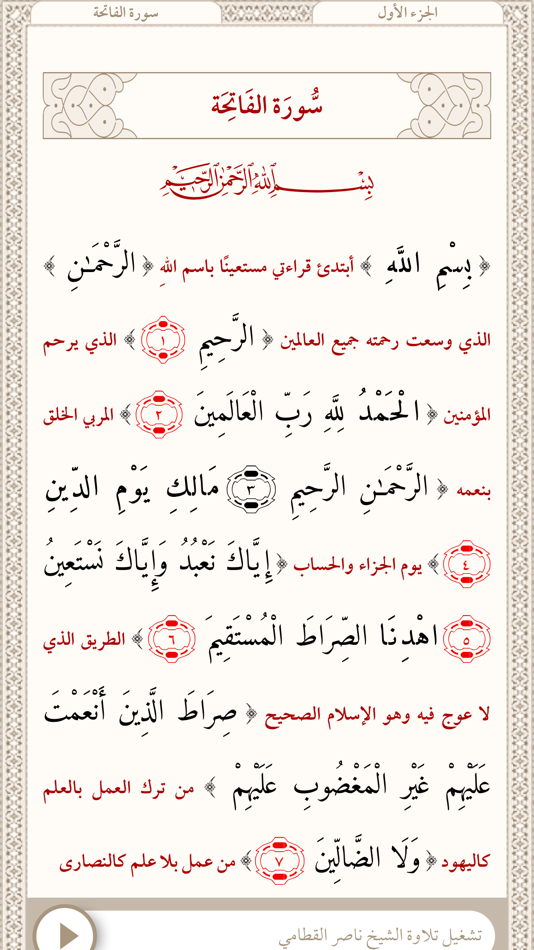 الجزء الأول
سورة الفاتحة
سُّورَة الفَاتِحَة
بِسْمِ اللَّهِ الرَّحْمَٰنِ الرَّحِيمِ
﴿ بِسْمِ اللَّهِ ﴾ أبتدئ قراءتي مستعينًا باسم اللهِ ﴿ الرَّحْمَٰنِ ﴾
الذي وسعت رحمته جميع العالمين ﴿ الرَّحِيمِ ١ ﴾ الذي يرحم
المؤمنين ﴿ الْحَمْدُ لِلَّهِ رَبِّ الْعَالَمِينَ ٢ ﴾ المربي الخلق
بنعمه ﴿ الرَّحْمَٰنِ الرَّحِيمِ ٣ مَالِكِ يَوْمِ الدِّينِ
٤ ﴾ يوم الجزاء والحساب ﴿ إِيَّاكَ نَعْبُدُ وَإِيَّاكَ نَسْتَعِينُ
٥ اهْدِنَا الصِّرَاطَ الْمُسْتَقِيمَ ٦ ﴾ الطريق الذي
لا عوج فيه وهو الإسلام الصحيح ﴿ صِرَاطَ الَّذِينَ أَنْعَمْتَ
عَلَيْهِمْ غَيْرِ الْمَغْضُوبِ عَلَيْهِمْ ﴾ من ترك العمل بالعلم
كاليهود ﴿ وَلَا الضَّالِّينَ ٧ ﴾ من عمل بلا علم كالنصارى
تشغيل تلاوة الشيخ ناصر القطامي